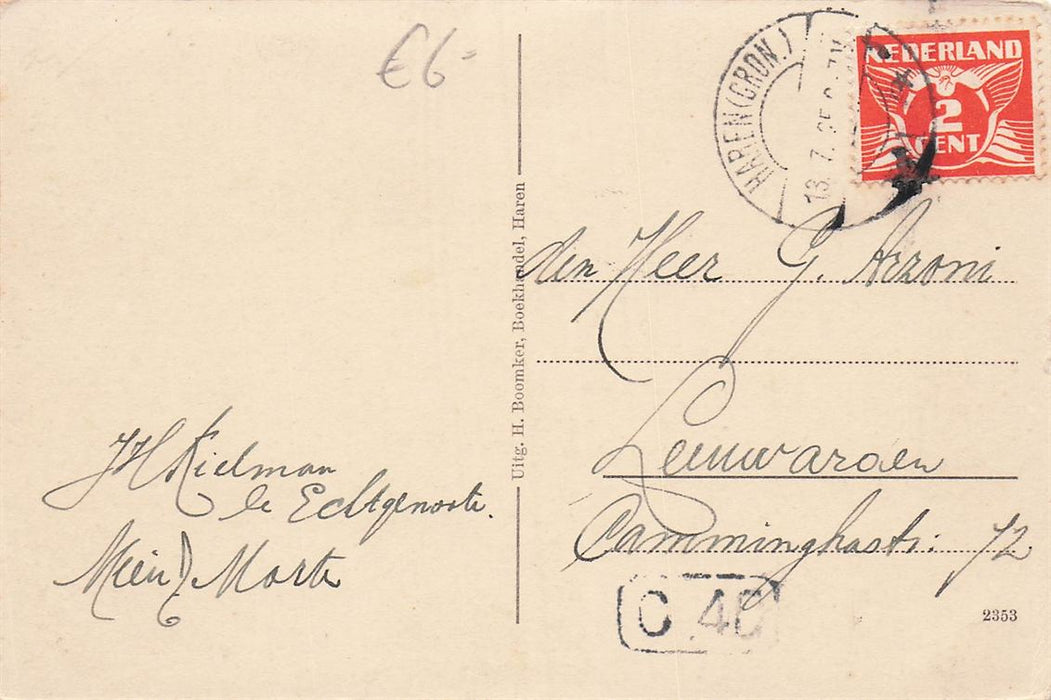 €6-
HAREN (GRON.)
13.7.35
NEDERLAND
2
CENT
den Heer G. Arzoni
Leeuwarden
Camminghastr: 72
Uitg. H. Boomker, Boekhandel, Haren
JH Kielman
& Echtgenoote.
Mien
C 40
2353